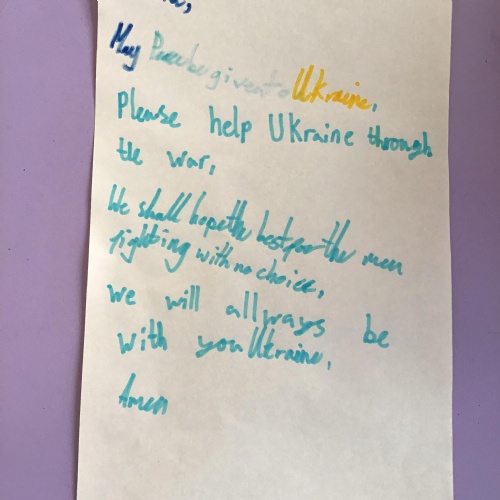 May Peace be given to Ukraine,
Please help Ukraine through
the war,
We shall hope the best for the men
fighting with no choice,
we will allways be
with you Ukraine,
Amen